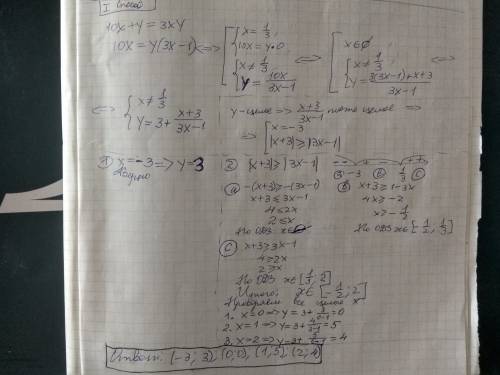 I способ
10x+y=3xy
10x=y(3x-1) <=> [ { x=1/3, 10x=y·0 { x≠1/3, y=10x/(3x-1) <=> [ x∈∅ { x≠1/3, y=(3(3x-1)+x+3)/(3x-1) <=>
<=> { x≠1/3, y=3+(x+3)/(3x-1) y-целое => (x+3)/(3x-1) тоже целое =>
=> [ x=-3, |x+3|≥|3x-1|
① x=-3 => y=3 ② |x+3|≥|3x-1|
ⓐ -(x+3)≥-(3x-1)
x+3≤3x-1
4≤2x
2≤x
По ОДЗ x∈∅
ⓑ x+3≥1-3x
4x≥-2
x≥-1/2
По ОДЗ x∈[-1/2; 1/3]
ⓒ x+3≥3x-1
4≥2x
2≥x
По ОДЗ x∈[1/3; 2]
Итого: x∈[-1/2; 2]
Проверяем все целое x
1. x=0 => y=3+3/(0-1)=0
2. x=1 => y=3+4/(3-1)=5
3. x=2 => y=3+ =4
Ответ: (-3; 3), (0;0), (1;5), (2;4)